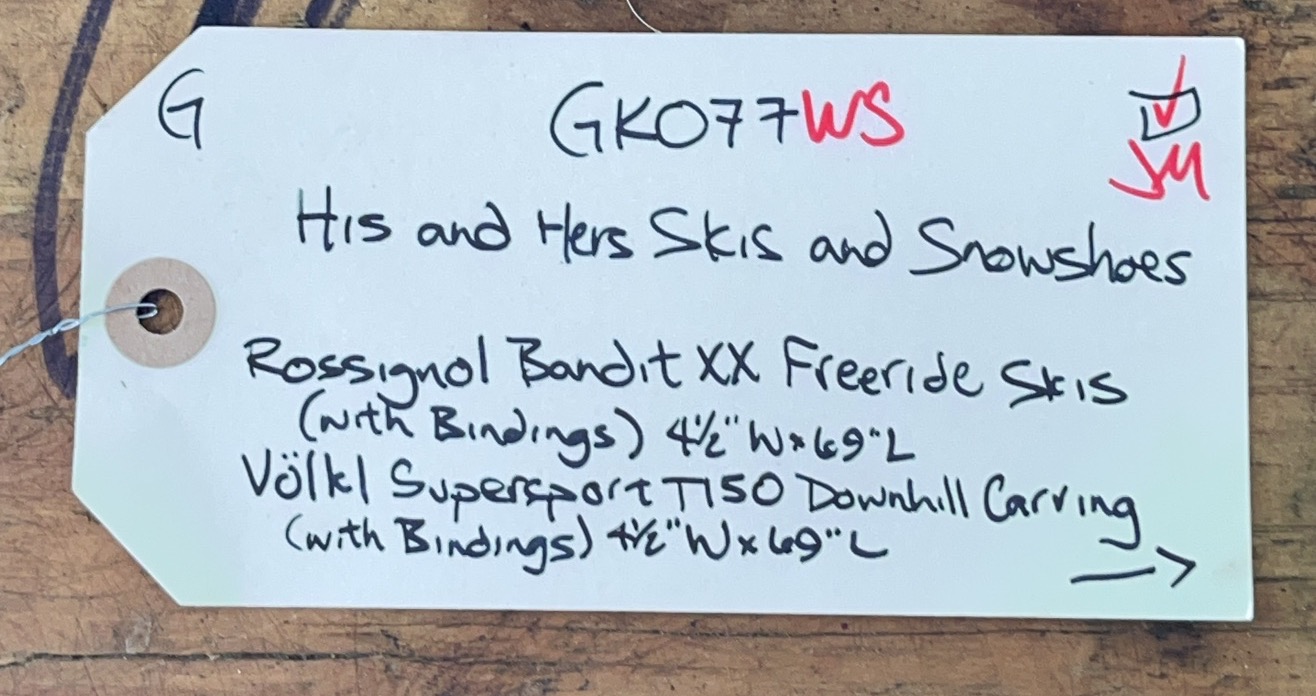 G GK077WS ☑
JM
His and Hers Skis and Snowshoes
Rossignol Bandit XX Freeride Skis
(with Bindings) 4½" W x 69" L
Völkl Supersport T150 Downhill Carving
(with Bindings) 4½" W x 69" L
→